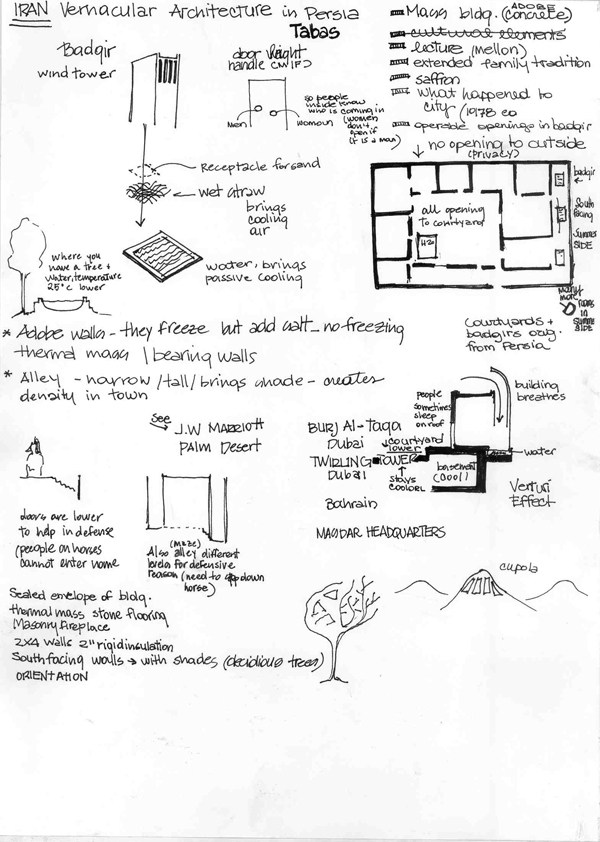 IRAN Vernacular Architecture in Persia
Tabas
Mass bldg. (concrete)
ADOBE
cultural elements
lecture (mellon)
extended family tradition
saffron
what happened to
city (1978 eq
operable openings in badgir
Badgir
wind tower
door height
handle
so people
inside know
who is coming in
(women
don't
open if
it is a man)
Men
Receptacle for sand
wet straw
brings
cooling
air
water, brings
passive cooling
where you
have a tree +
water, temperature
25°C lower
no opening to outside
(privacy)
all opening
to courtyard
H2O
badgir
South
facing
Summer
SIDE
Many
more
rooms
in
summer
SIDE
Courtyards +
badgirs orig.
from Persia
* Adobe walls - they freeze but add salt - no freezing
thermal mass / bearing walls
* Alley - narrow / tall / brings shade - creates
density in town
See
J.W MARRIOTT
PALM Desert
BURJ Al-Taqa
Dubai
TWIRLING TOWER
Dubai
Bahrain
MASDAR HEADQUARTERS
people
sometimes
sleep
on roof
building
breathes
courtyard
lower
stays
cooler
basement
(cool)
water
Venturi
Effect
doors are lower
to help in defense
(people on horses
cannot enter home
(maze)
Also alley different
levels for defensive
reason (need to step down
horse)
cupola
Sealed envelope of bldg.
thermal mass stone flooring
Masonry fireplace
2x4 walls 2" rigid insulation
South facing walls → with shades (decidious trees)
ORIENTATION